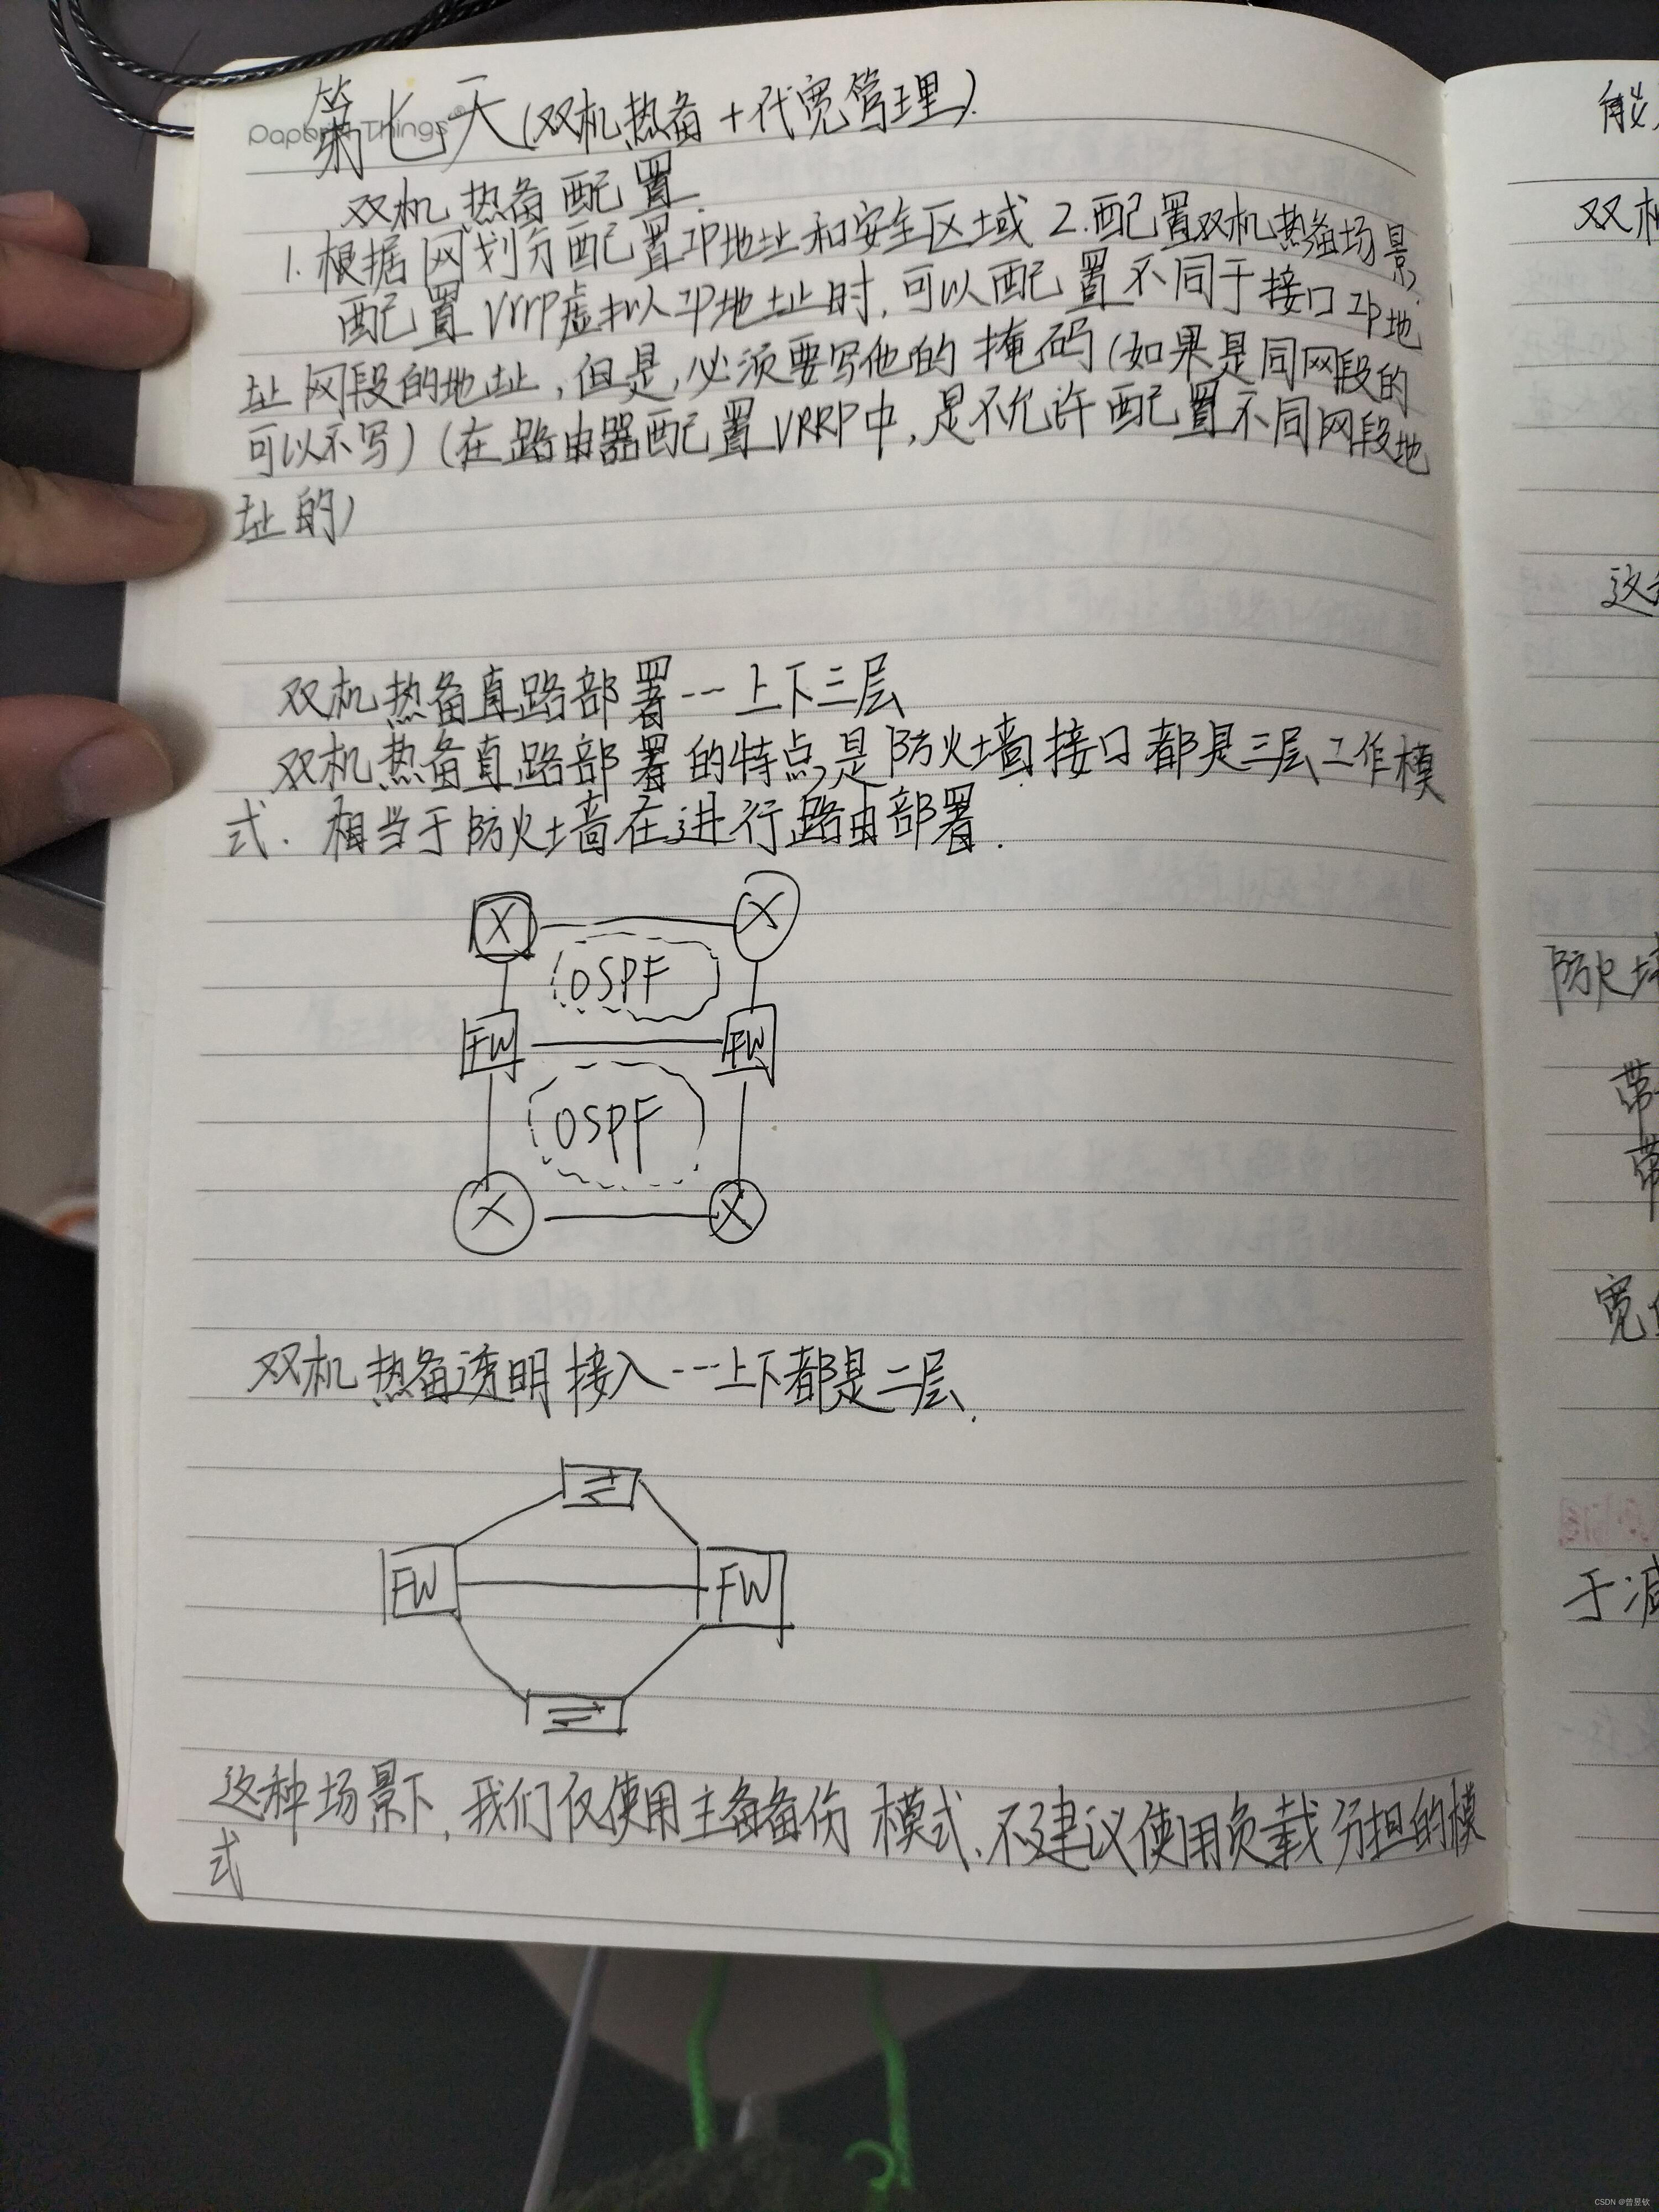 Paper Things
第七天(双机热备+代宽管理).
双机热备配置.
1.根据网划分配置IP地址和安全区域 2.配置双机热备场景,
配置Vrrp虚拟IP地址时,可以配置不同于接口IP地
址网段的地址,但是,必须要写他的掩码(如果是同网段的
可以不写)(在路由器配置VRRP中,是不允许配置不同网段地
址的)
双机热备直路部署---上下三层
双机热备直路部署的特点是防火墙接口都是三层工作模
式.相当于防火墙在进行路由部署.
X X
OSPF
FW FW
OSPF
X X
双机热备透明接入---上下都是二层.
FW FW
这种场景下,我们仅使用主备备份模式,不建议使用负载分担的模
式
双
这
防火
带
带
宽
于减
CSDN @曾昱钦